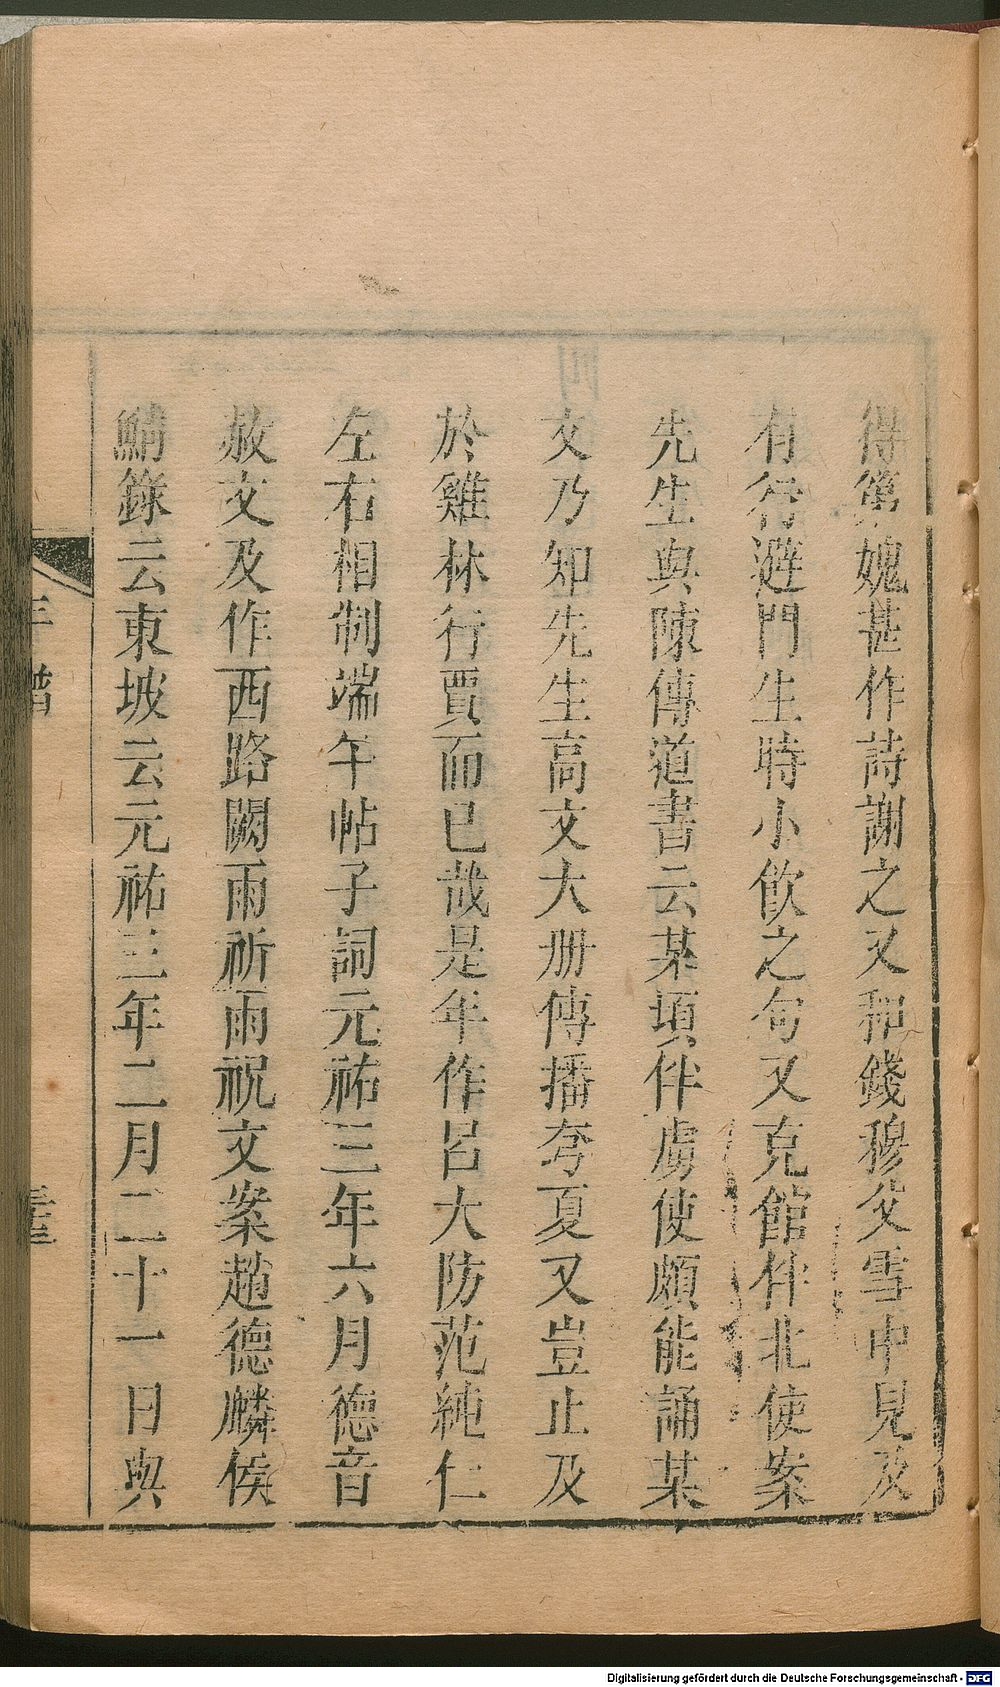 得第媿甚作詩謝之又和錢穆父雪中見及
有行避門生時小飲之句又克館伴北使案
先生與陳傳道書云某頃伴虜使頗能誦某
文乃知先生高文大册傳播夸夏又豈止及
於雞林行賈而已哉是年作呂大防范純仁
左右相制端午帖子詞元祐三年六月德音
赦文及作西路闕雨祈雨祝文案趙德麟侯
鯖錄云東坡云元祐三年二月二十一日與
年譜
三三
Digitalisierung gefördert durch die Deutsche Forschungsgemeinschaft - DFG